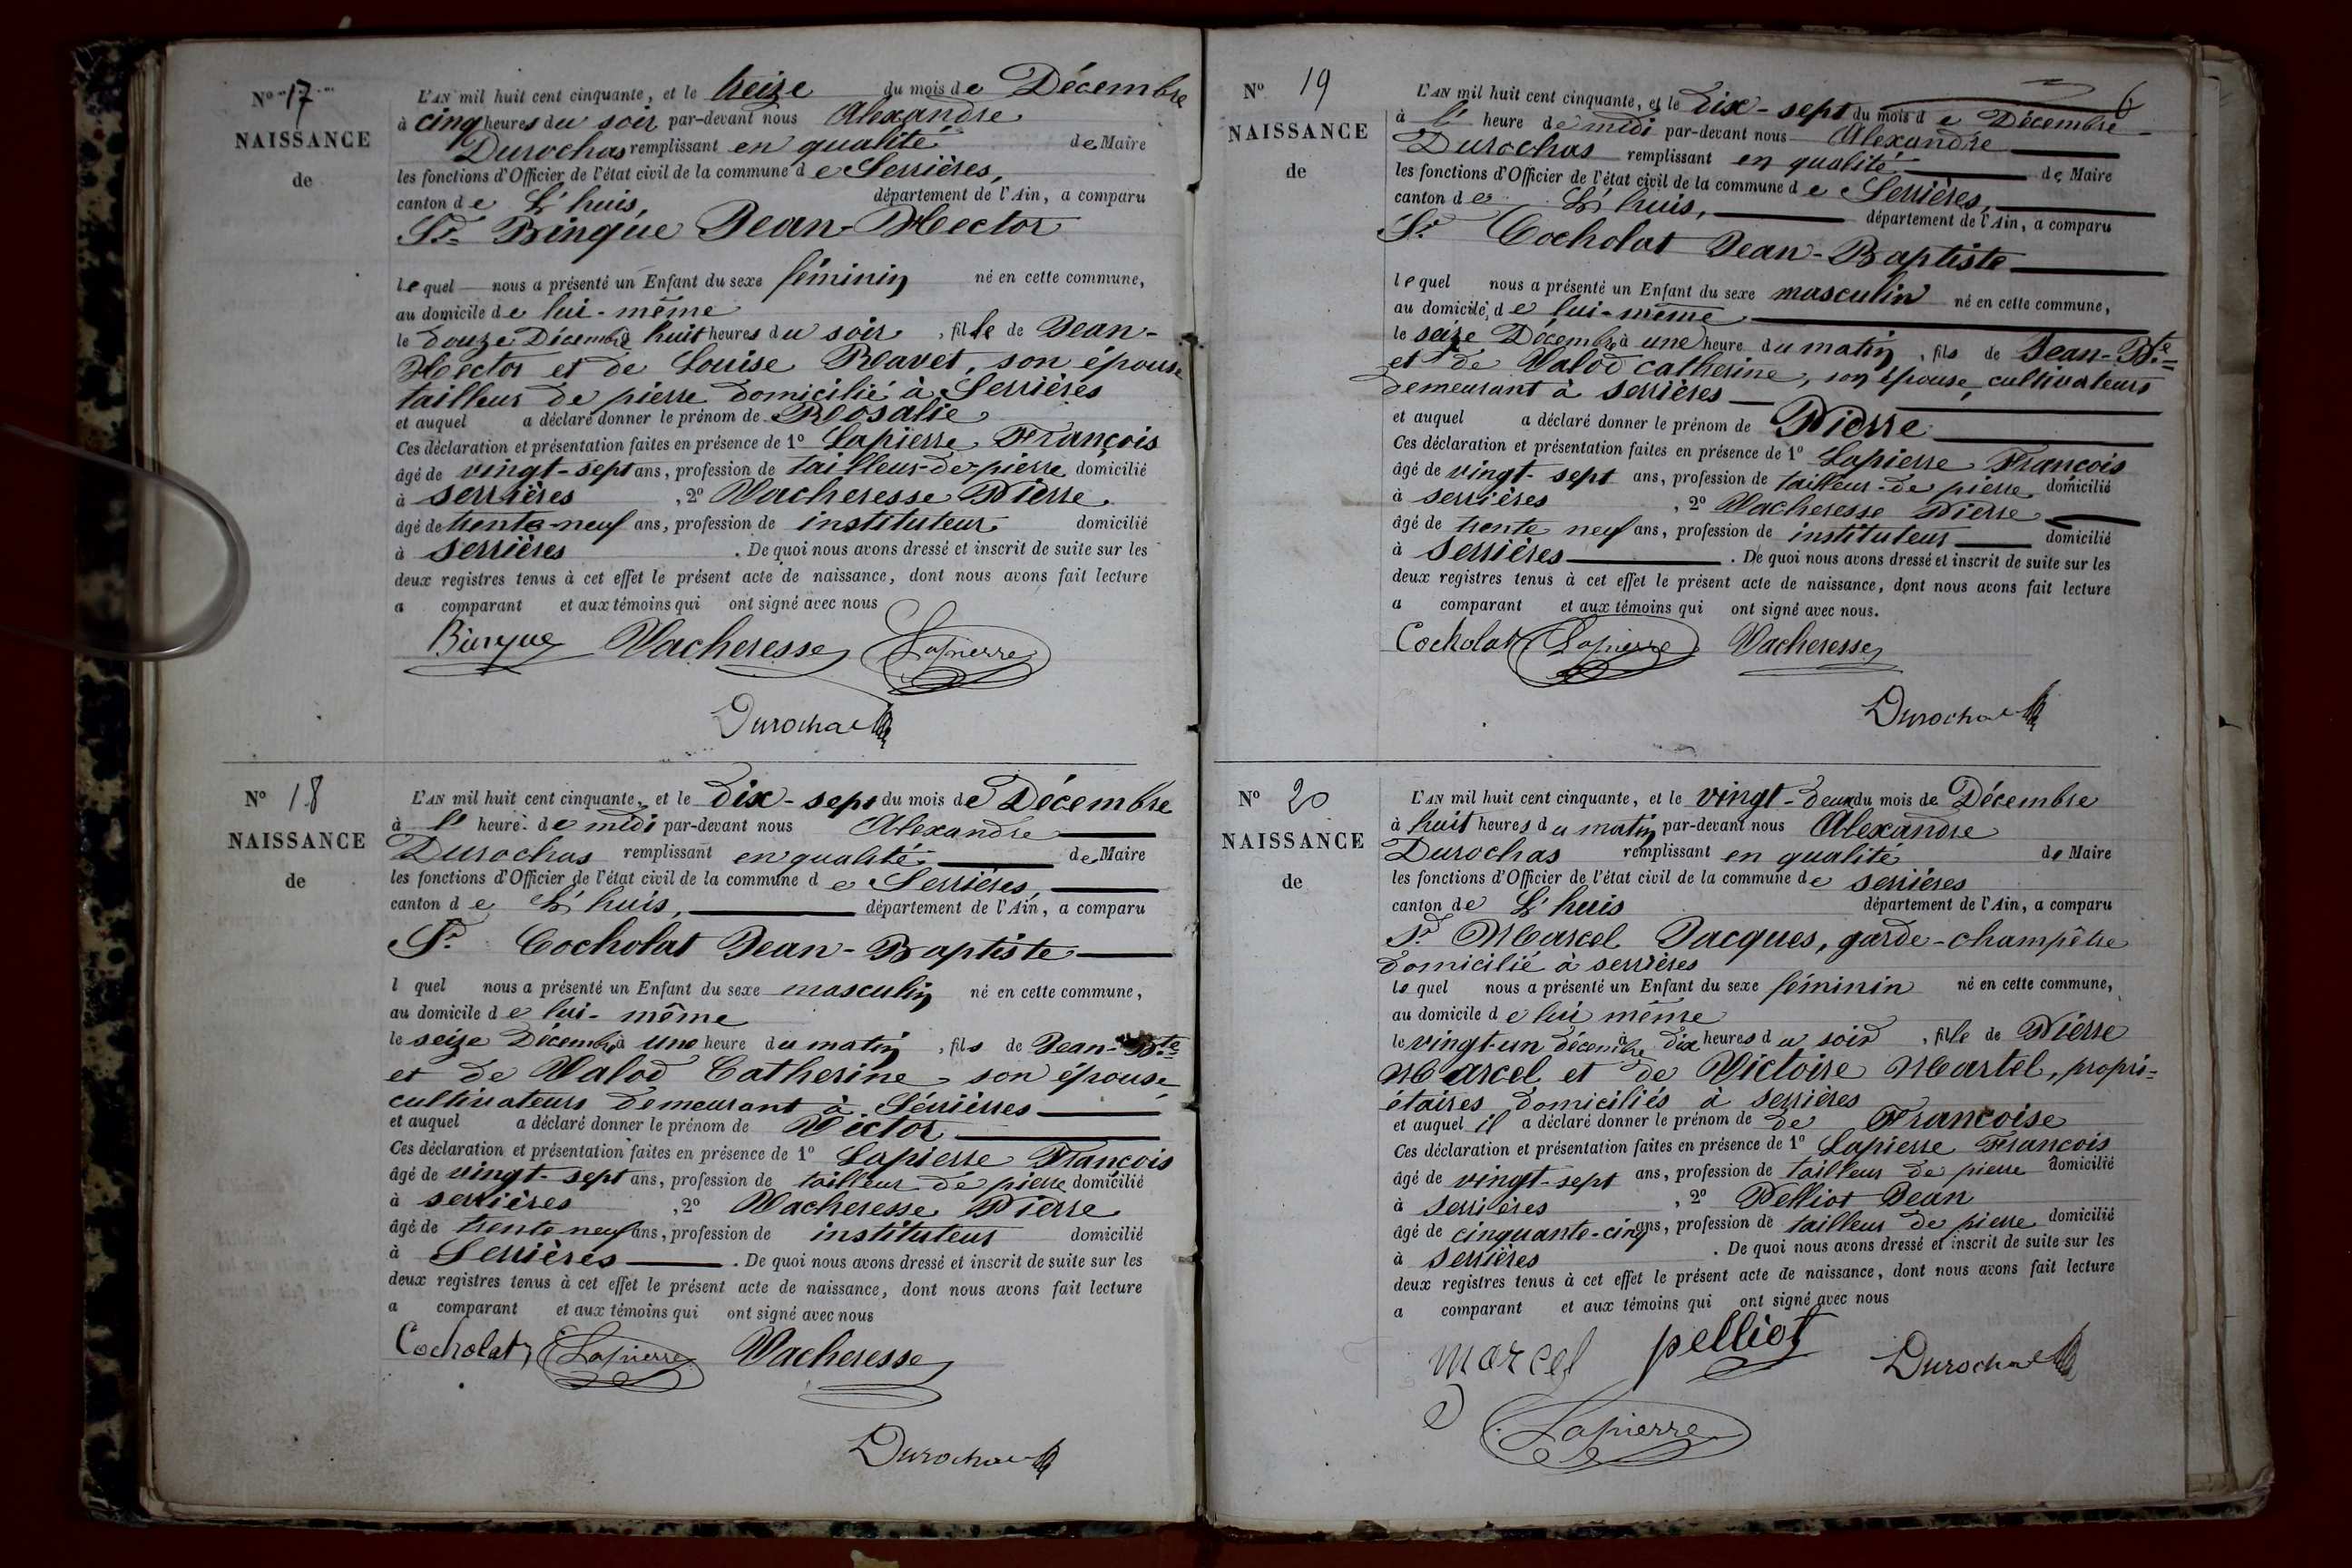 N° 17
NAISSANCE
de
L'AN mil huit cent cinquante, et le treize du mois de Décembre
à cinq heures du soir par-devant nous Alexandre
Durochas remplissant en qualité de Maire
les fonctions d'Officier de l'état civil de la commune de Serrières,
canton de L'huis, département de l'Ain, a comparu
Sr. Binque Jean-Hector
lequel nous a présenté un Enfant du sexe féminin né en cette commune,
au domicile de lui-même
le douze Décembre à huit heures du soir, fille de Jean-
Hector et de Louise Ravet, son épouse
tailleur de pierre domicilié à Serrières
et auquel a déclaré donner le prénom de Rosalie
Ces déclaration et présentation faites en présence de 1° Lapierre François
âgé de vingt-sept ans, profession de tailleur-de-pierre domicilié
à serrières, 2° Vacheresse Pierre
âgé de trente-neuf ans, profession de instituteur domicilié
à serrières. De quoi nous avons dressé et inscrit de suite sur les
deux registres tenus à cet effet le présent acte de naissance, dont nous avons fait lecture
a comparant et aux témoins qui ont signé avec nous
Binque Vacheresse Lapierre
Durochas
N° 18
NAISSANCE
de
L'AN mil huit cent cinquante, et le Dix-sept du mois de Décembre
à l' heure de midi par-devant nous Alexandre
Durochas remplissant en qualité de Maire
les fonctions d'Officier de l'état civil de la commune de Serrières,
canton de L'huis, département de l'Ain, a comparu
Sr. Cocholat Jean-Baptiste
l quel nous a présenté un Enfant du sexe masculin né en cette commune,
au domicile de lui-même
le seize Décembre à une heure du matin, fils de Jean-Bte
et de Valod Catherine son épouse,
cultivateurs demeurant à Serrièrres
et auquel a déclaré donner le prénom de Victor
Ces déclaration et présentation faites en présence de 1° Lapierre François
âgé de vingt-sept ans, profession de tailleur de pierre domicilié
à serrières, 2° Vacheresse Pierre
âgé de trente neuf ans, profession de instituteur domicilié
à Serrières. De quoi nous avons dressé et inscrit de suite sur les
deux registres tenus à cet effet le présent acte de naissance, dont nous avons fait lecture
a comparant et aux témoins qui ont signé avec nous
Cocholat Lapierre Vacheresse
Durochas
6
N° 19
NAISSANCE
de
L'AN mil huit cent cinquante, et le Dix-sept du mois de Décembre
à l' heure de midi par-devant nous Alexandre
Durochas remplissant en qualité de Maire
les fonctions d'Officier de l'état civil de la commune de Serrières,
canton de L'huis, département de l'Ain, a comparu
Sr. Cocholat Jean-Baptiste
lequel nous a présenté un Enfant du sexe masculin né en cette commune,
au domicile de lui-même
le seize Décembre à une heure du matin, fils de Jean-Bte
et de Valod catherine, son épouse, cultivateurs
demeurant à serrières
et auquel a déclaré donner le prénom de Pierre
Ces déclaration et présentation faites en présence de 1° Lapierre François
âgé de vingt-sept ans, profession de tailleur-de pierre domicilié
à serrières, 2° Vacheresse Pierre
âgé de trente neuf ans, profession de instituteur domicilié
à Serrières. De quoi nous avons dressé et inscrit de suite sur les
deux registres tenus à cet effet le présent acte de naissance, dont nous avons fait lecture
a comparant et aux témoins qui ont signé avec nous.
Cocholat Lapierre Vacheresse
Durochas
N° 20
NAISSANCE
de
L'AN mil huit cent cinquante, et le vingt-deux du mois de Décembre
à huit heures du matin par-devant nous Alexandre
Durochas remplissant en qualité de Maire
les fonctions d'Officier de l'état civil de la commune de serrières
canton de L'huis département de l'Ain, a comparu
Sr. Marcel Jacques, garde-champêtre
domicilié à serrières
lequel nous a présenté un Enfant du sexe féminin né en cette commune,
au domicile de lui même
le vingt-un décembre à dix heures du soir, fille de Pierre
Marcel et de Victoire Martel, propri=
étaires domiciliés à serrières
et auquel il a déclaré donner le prénom de de Françoise
Ces déclaration et présentation faites en présence de 1° Lapierre François
âgé de vingt-sept ans, profession de tailleur de pierre domicilié
à serrières, 2° Pelliot Jean
âgé de cinquante-cinq ans, profession de tailleur de pierre domicilié
à serrières. De quoi nous avons dressé et inscrit de suite sur les
deux registres tenus à cet effet le présent acte de naissance, dont nous avons fait lecture
a comparant et aux témoins qui ont signé avec nous
marcel pelliot Durochas
Lapierre